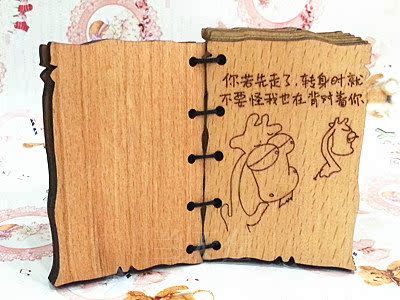 你若先走了,转身时就
不要怪我也在背对着你